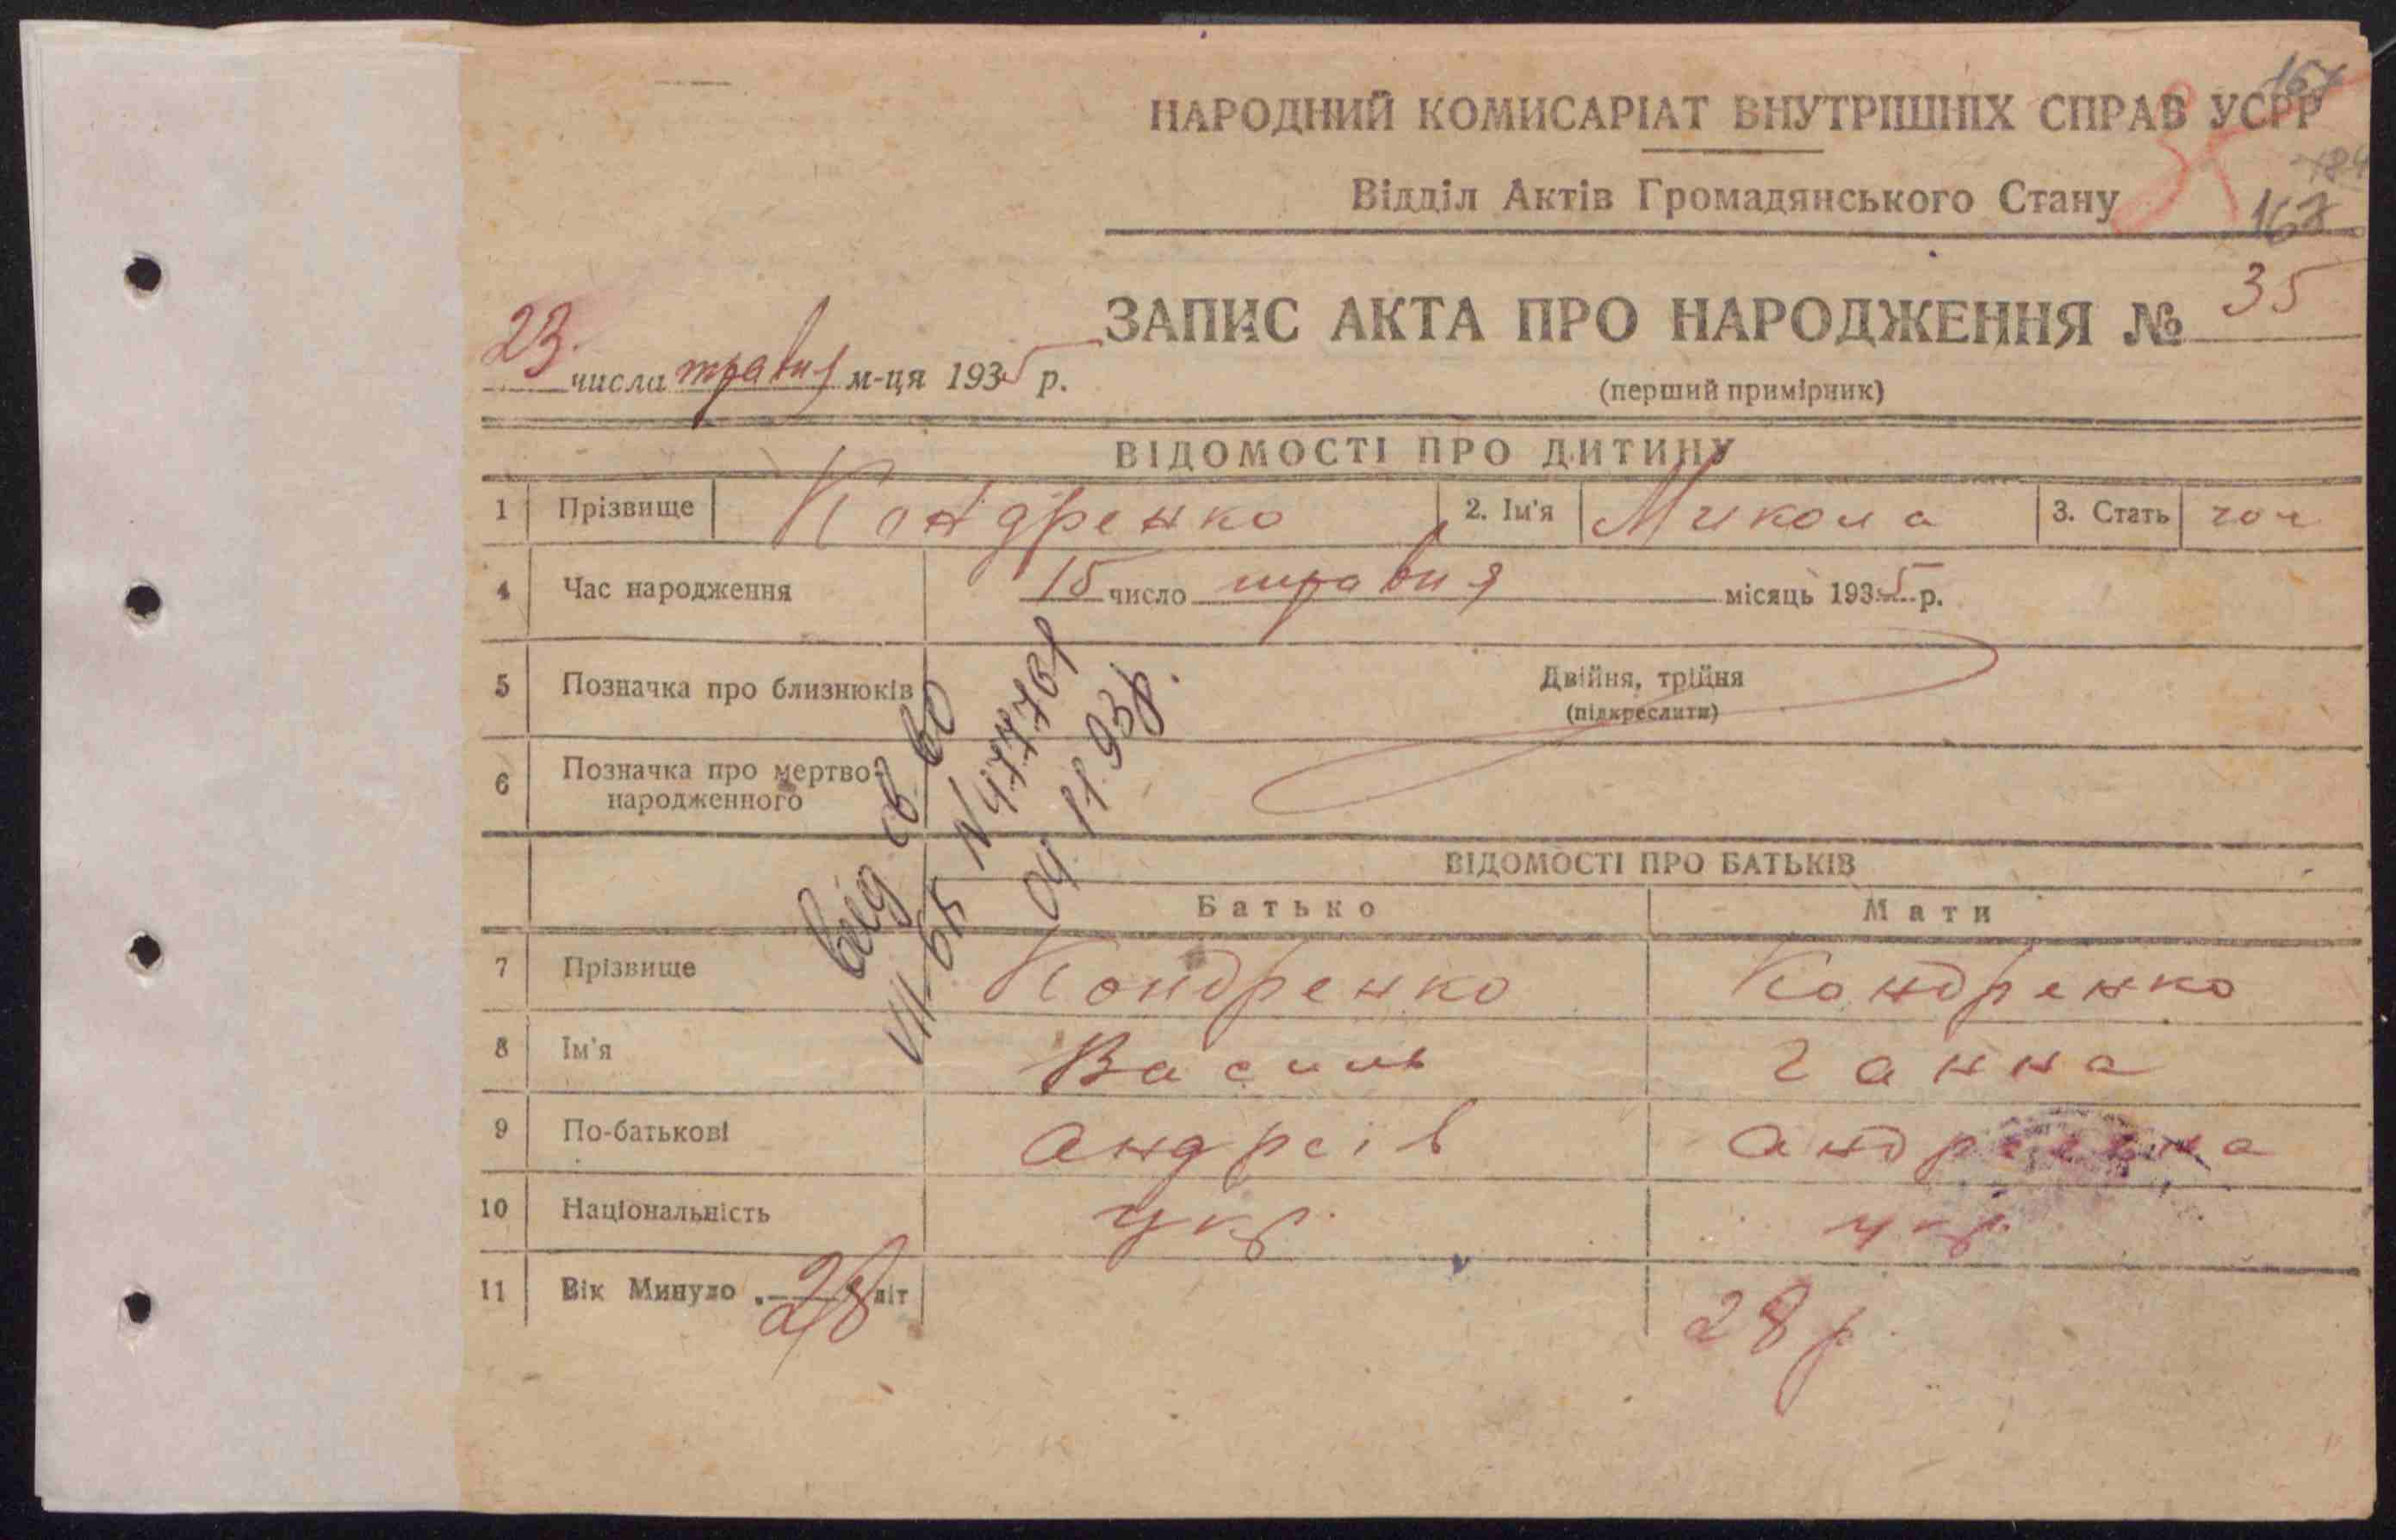 167
НАРОДНИЙ КОМИСАРІАТ ВНУТРІШНІХ СПРАВ УСРР
35
Відділ Актів Громадянського Стану
184
167
ЗАПИС АКТА ПРО НАРОДЖЕННЯ № 35
23 числа травня м-ця 1935 р.
(перший примірник)
ВІДОМОСТІ ПРО ДИТИНУ
1 Прізвище Кондренко 2. Ім'я Микола 3. Стать чоч
4 Час народження 15 число травня місяць 1935 р.
5 Позначка про близнюків Двійня, трійня
(підкреслити)
6 Позначка про мертво-
народженного
вид св во
VII-БЯ N 477761
04 11.93р.
ВІДОМОСТІ ПРО БАТЬКІВ
Батько Мати
7 Прізвище Кондренко Кондренко
8 Ім'я Василь Ганна
9 По-батькові Андреів Андреевна
10 Національність укр. укр.
11 Вік Минуло 28 літ 28 р.